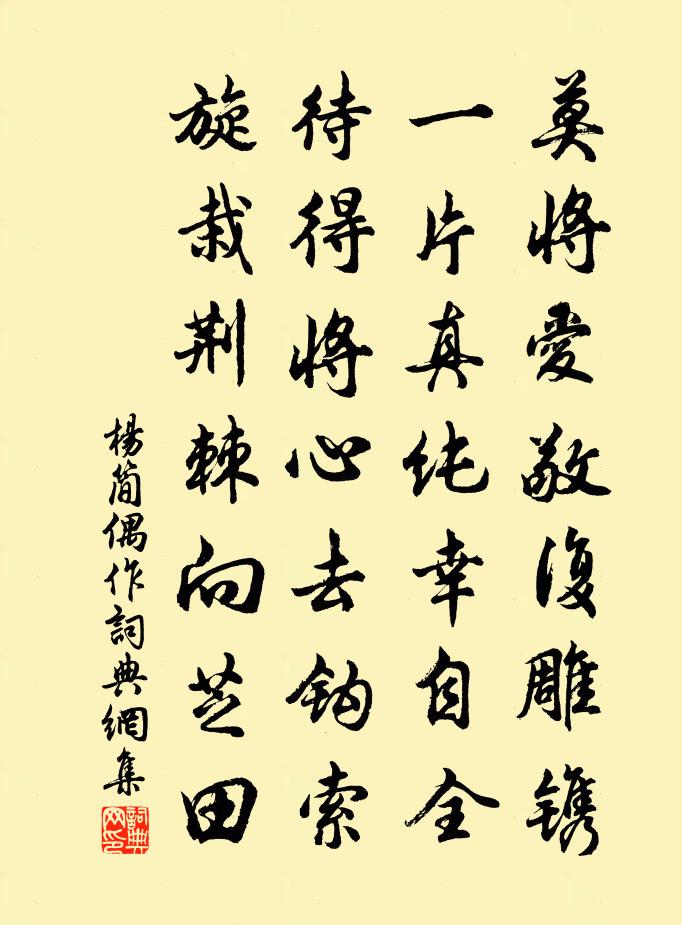 莫將愛敬復雕鐫
一片真純幸自全
待得將心去鈎索
旋栽荆棘向芝田
楊簡偶作詞典網集
詞典网印